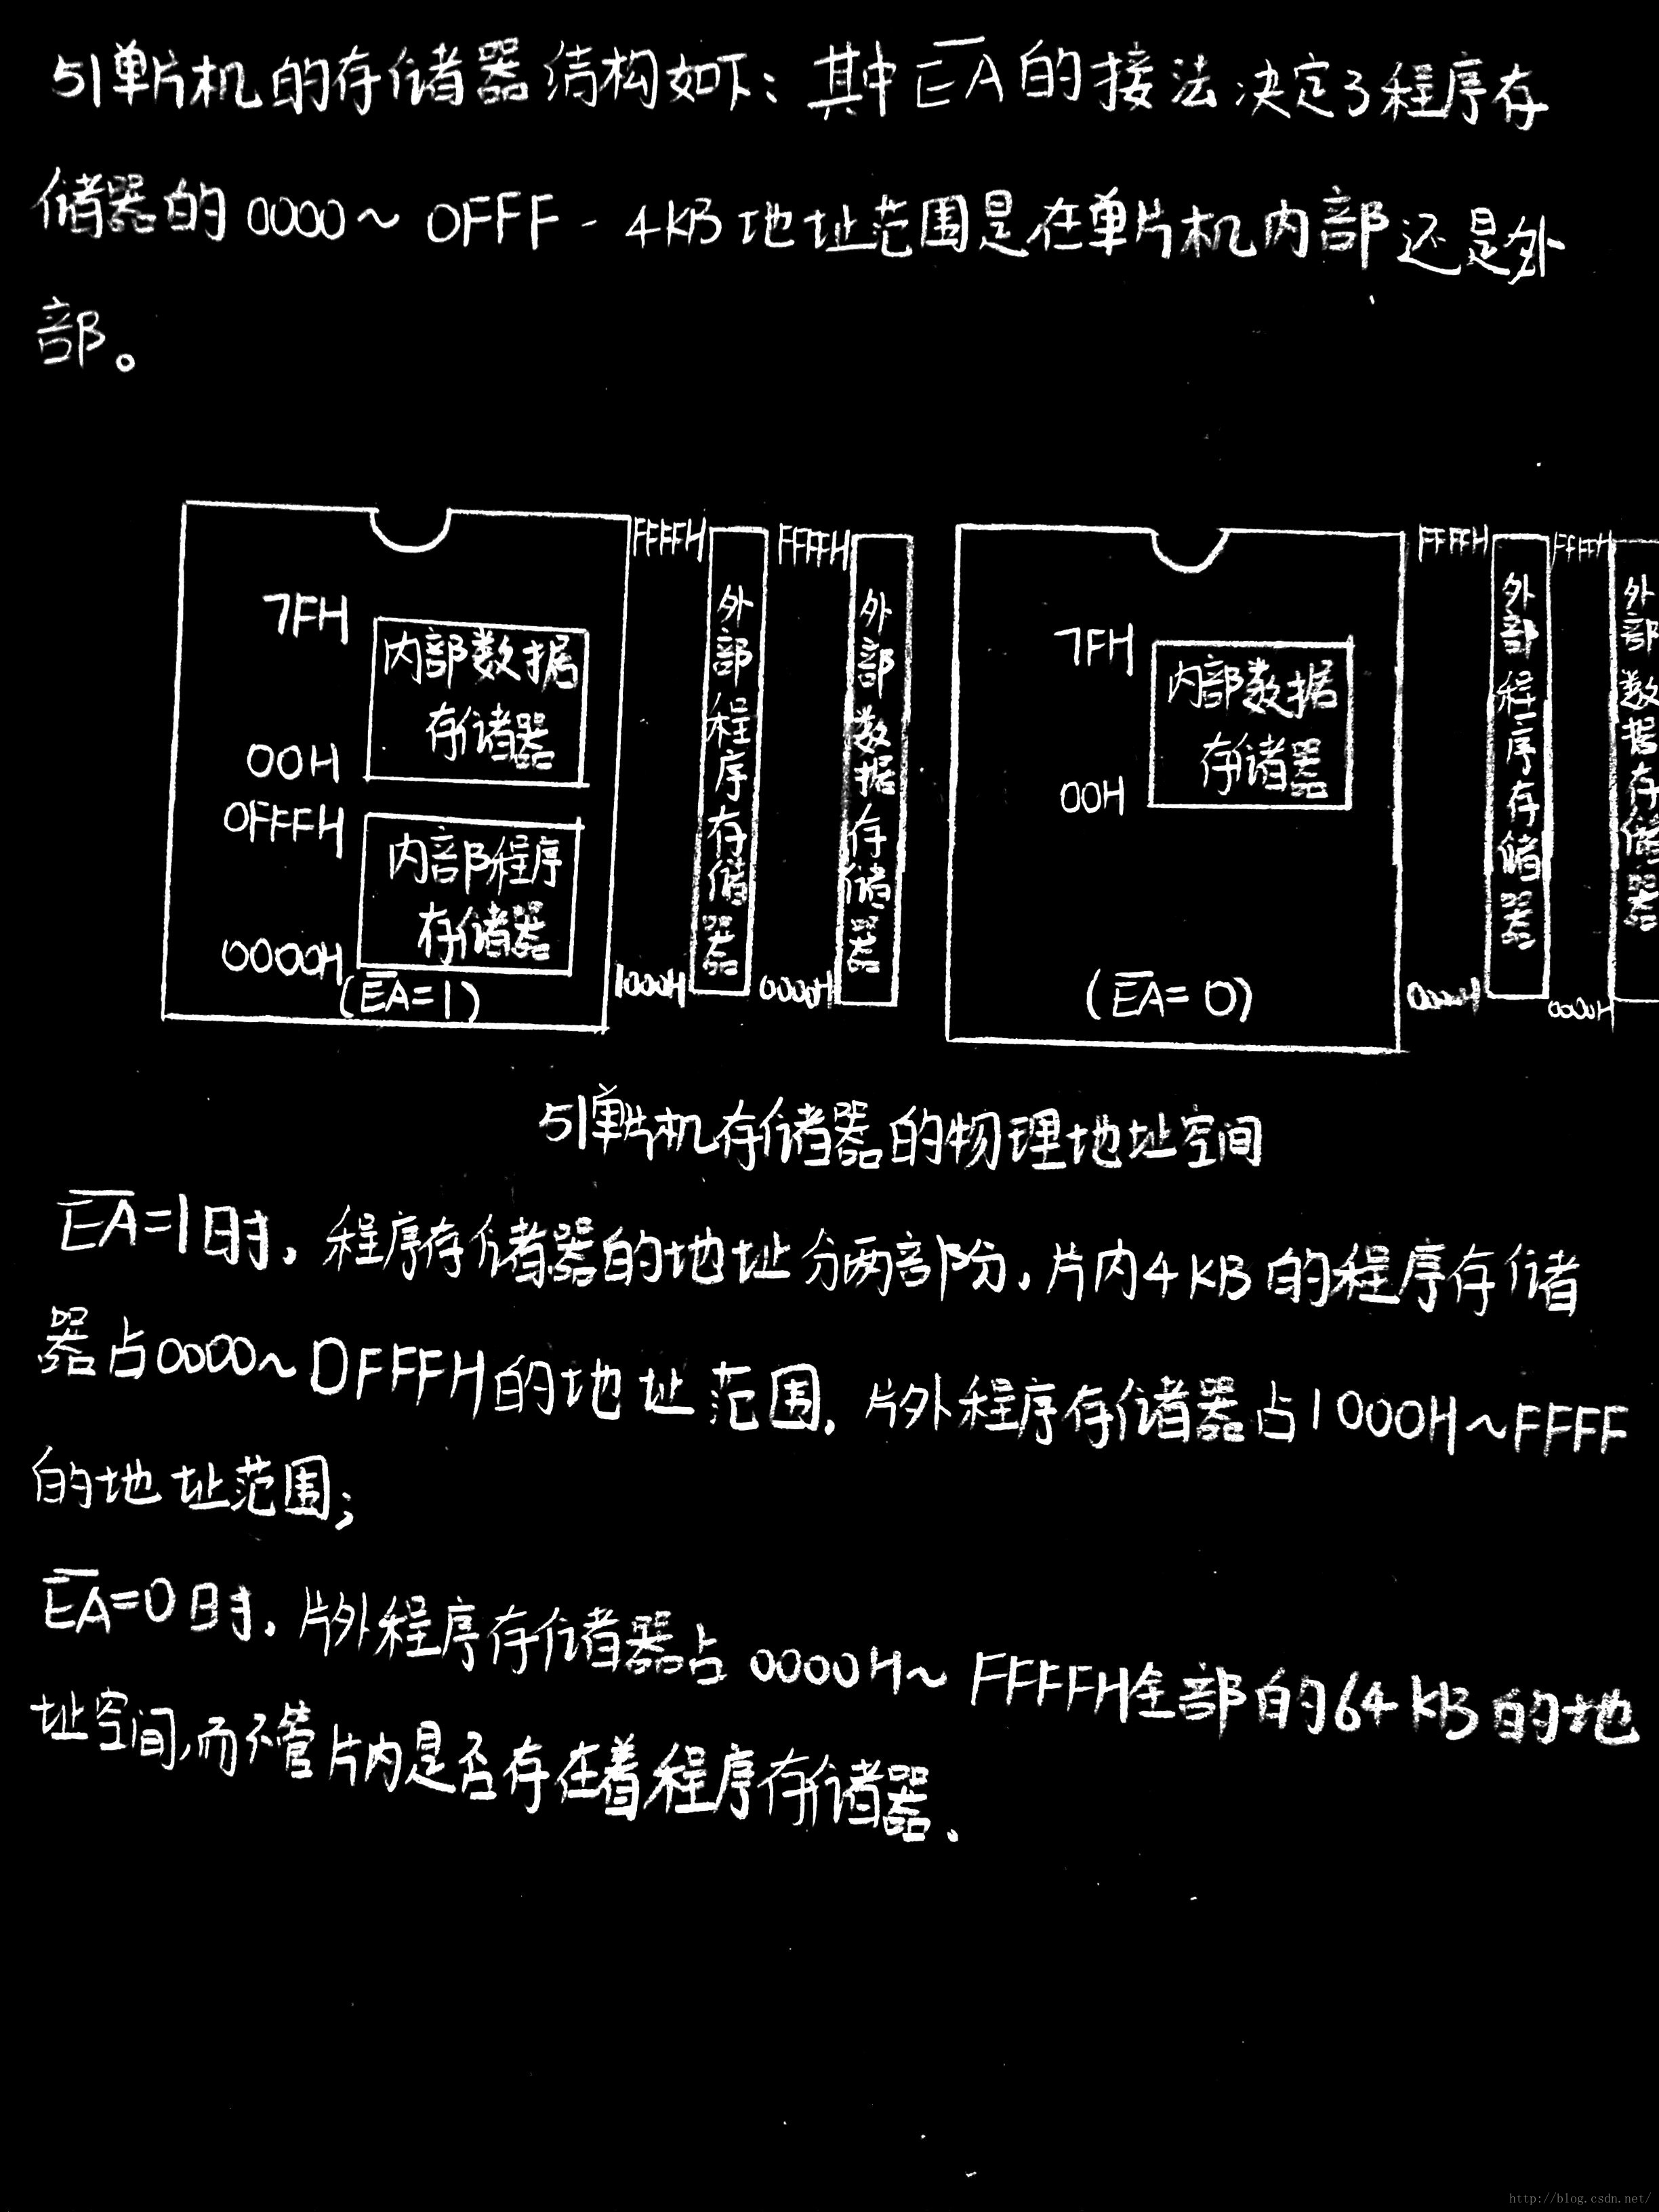 51单片机的存储器结构如下：其中E̅A̅的接法决定了程序存
储器的0000~0FFF-4KB地址范围是在单片机内部还是外
部。
FFFFH
FFFFH
7FH
内部数据
存储器
00H
0FFFH
内部程序
存储器
0000H
(E̅A̅=1)
外部程序存储器
1000H
外部数据存储器
0000H
FFFFH
FFFFH
7FH
内部数据
存储器
00H
(E̅A̅=0)
外部程序存储器
外部数据存储器
0000H
51单片机存储器的物理地址空间
E̅A̅=1时，程序存储器的地址分两部份，片内4KB的程序存储
器占0000~0FFFH的地址范围，片外程序存储器占1000H~FFFF
的地址范围；
E̅A̅=0时，片外程序存储器占0000H~FFFFH全部的64KB的地
址空间，而不管片内是否存在着程序存储器.
http://blog.csdn.net/